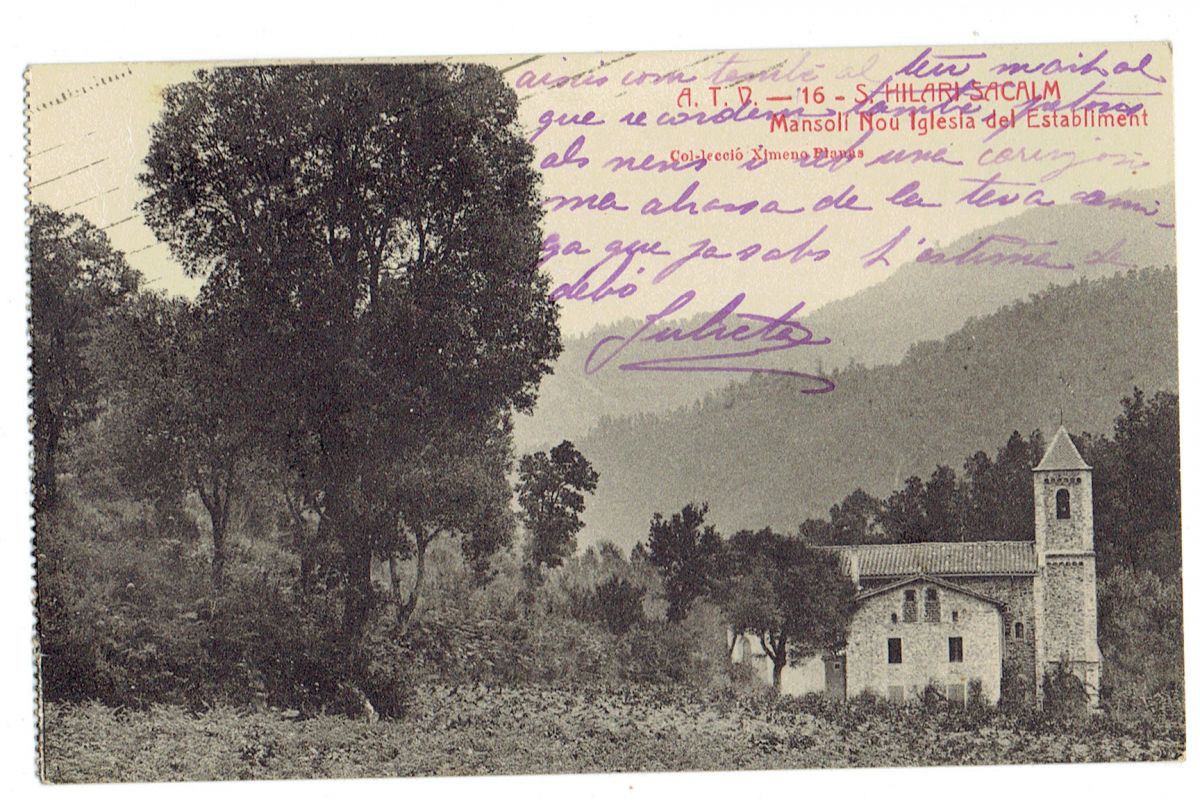 aixis com també al teu marit al
A. T. V. — 16 - S. HILARI SACALM
que recordem també petons
Mansolí Nou Iglesia del Establiment
als nens i rel una carinyosis
Col·lecció Ximeno Planas
ma abrassa de la teva ami-
ga que ja sabs l'estima de
debó
Julieta